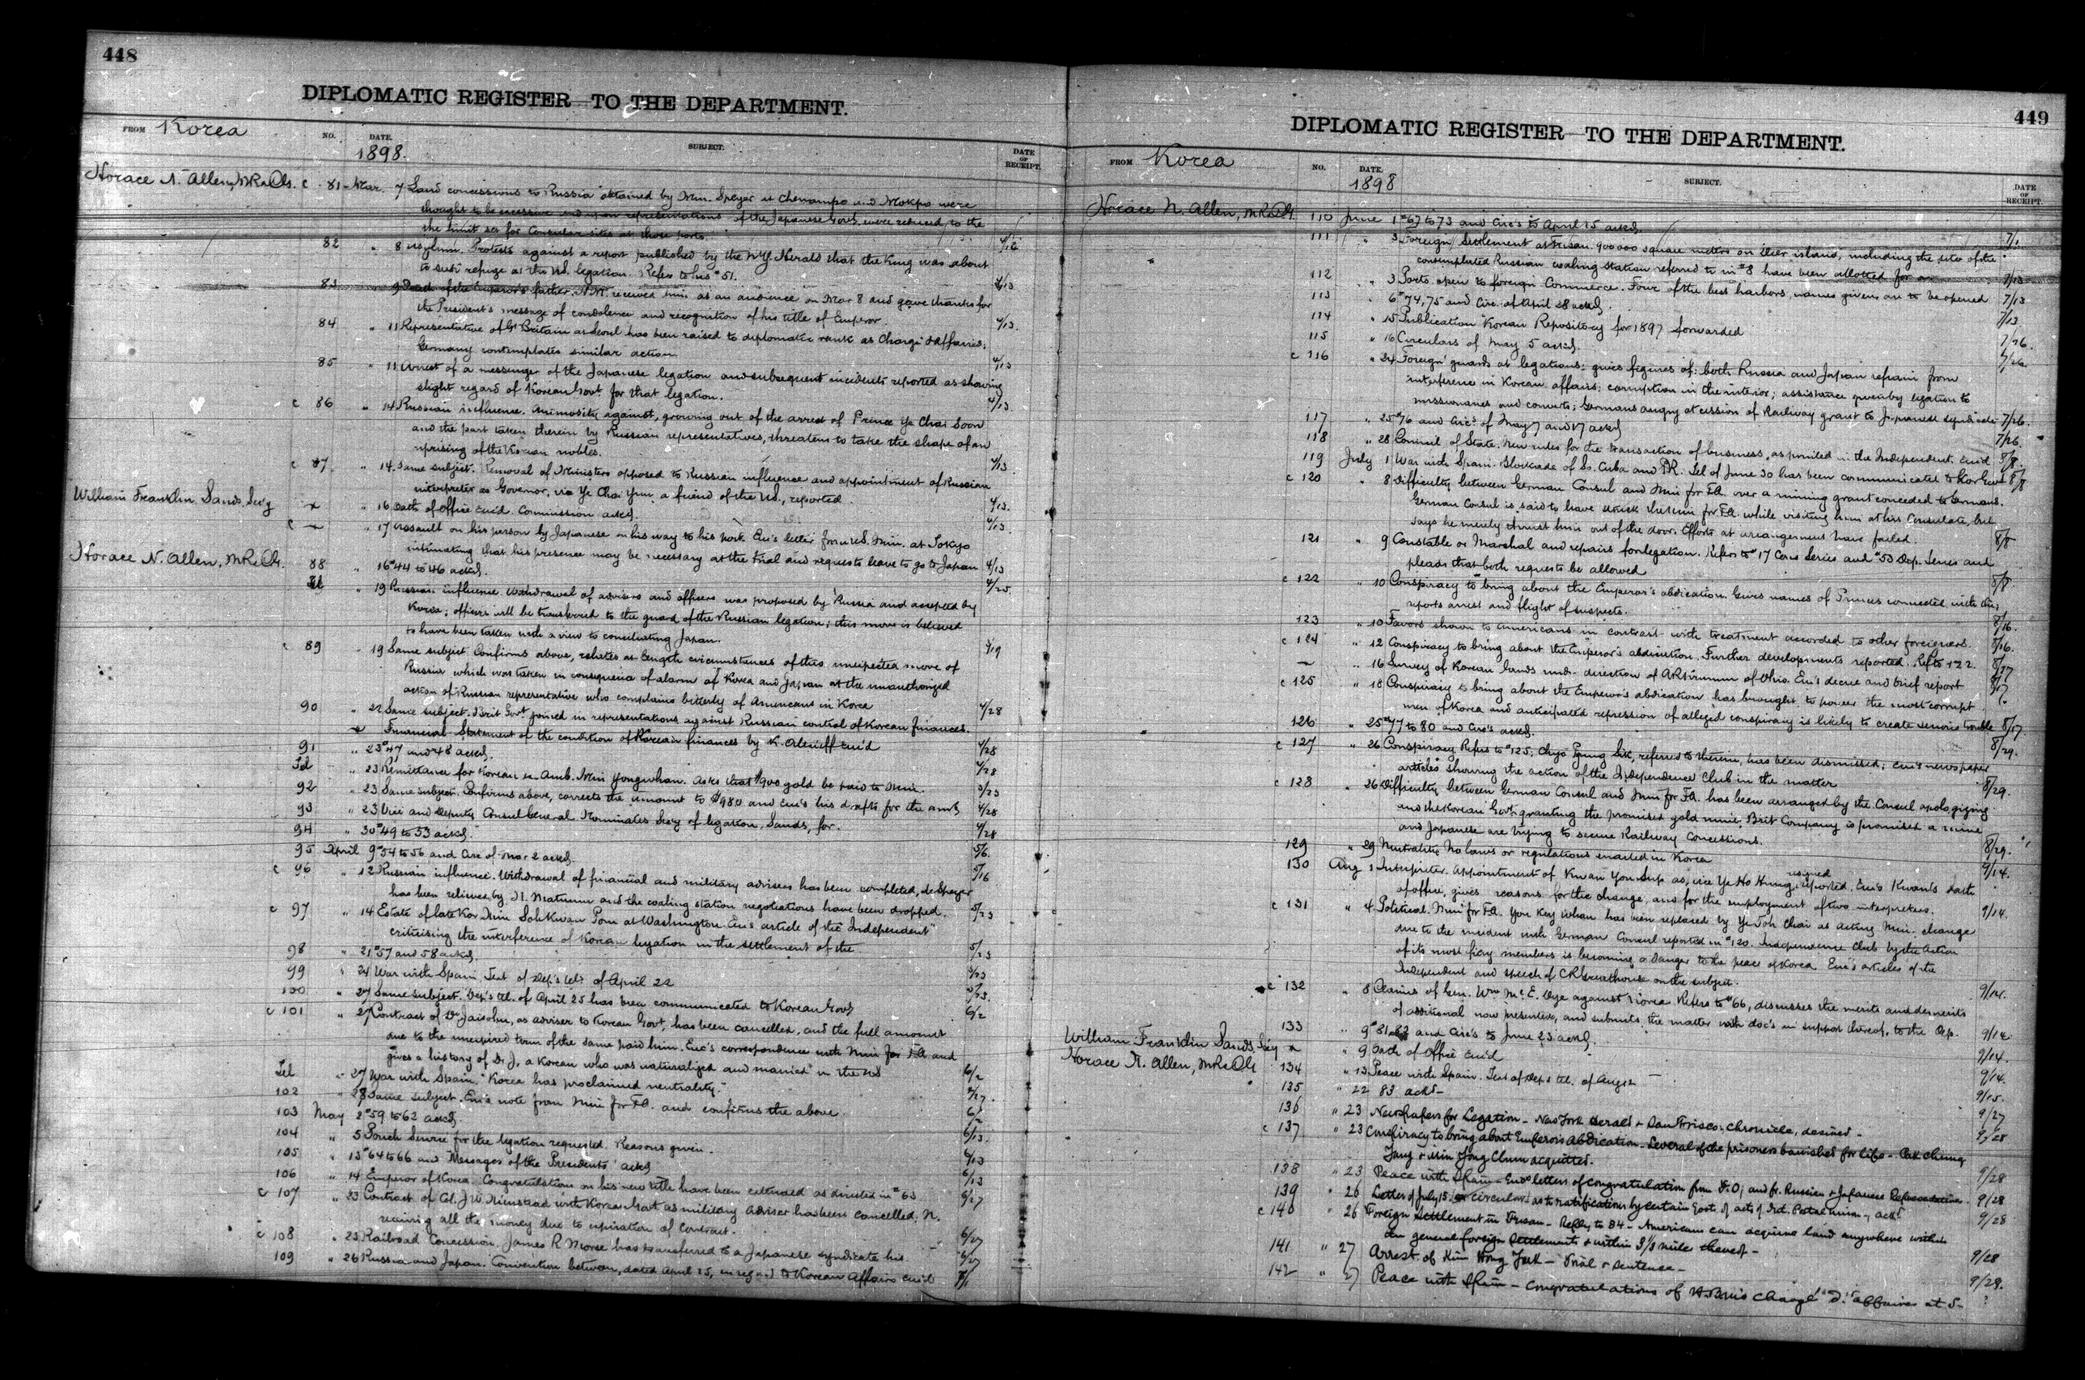 448
DIPLOMATIC REGISTER TO THE DEPARTMENT.
FROM Korea
NO.
DATE.
1898.
SUBJECT.
DATE OF RECEIPT.
Horace N. Allen, M.R. & C.G. c 81 Mar. 7 Land concessions to Russia obtained by Min. Speyer at Chenampo and Mokpo were
thought to be excessive and upon representations of the Japanese Govt. were reduced to the
the limit set for Consular sites at those ports. 4/12
82 " 8 Asylum. Protests against a report published by the N.Y. Herald that the King was about
to seek refuge at the U.S. legation. Refers to his #51. 4/13
83 " 9 Death of the Emperor's father. H.M. received him as an audience on Mar 8 and gave thanks for
the President's message of condolence and recognition of his title of Emperor 4/13.
84 " 11 Representative of Gt Britain at Seoul has been raised to diplomatic rank as Chargé d'Affaires;
Germany contemplates similar action. 4/13
85 " 11 Arrest of a messenger of the Japanese legation and subsequent incidents reported as showing
slight regard of Korean Govt. for that legation. 4/13
c 86 " 14 Russian influence. Animosity against, growing out of the arrest of Prince Ye Chai Soon
and the part taken therein by Russian representatives, threatens to take the shape of an
uprising of the Korean nobles. 4/13
c 87 " 14 Same subject. Removal of Ministers opposed to Russian influence and appointment of Russian
interpreter as Governor, via Ye Cha Yun, a friend of the U.S., reported 4/13.
William Franklin Sands Secy x " 16 Oath of Office enc'd. Commission ackd. 4/13
c — " 17 Assault on his person by Japanese on his way to his post. Enc's letter from U.S. Min. at Tokyo
intimating that his presence may be necessary at the trial and requests leave to go to Japan 4/13
Horace N. Allen, M.R. & C.G. 88 " 16 #44 to 46 ackd. 4/25
Tel " 19 Russian influence. Withdrawal of advisers and officers was proposed by Russia and accepted by
Korea; officers will be transferred to the guard of the Russian legation; this move is believed
to have been taken with a view to conciliating Japan. 3/19
c 89 " 19 Same subject. Confirms above, relates at length circumstances of this unexpected move of
Russia which was taken in consequence of alarm of Korea and Japan at the unauthorized
action of Russian representative who complains bitterly of Americans in Korea 4/28
90 " 22 Same subject. Brit Govt. joined in representations against Russian control of Korean finances.
Financial Statement of the condition of Korean finances by K. Alexeieff enc'd 4/28
91 " 23 #47 and 48 ackd. 4/28
Tel " 23 Remittance for Korean ex-Amb. Min Yonghwan. Asks that $900 gold be paid to Min. 3/23
92 " 23 Same subject. Confirms above, corrects the amount to $980 and Enc's his drafts for the amt. 4/28
93 " 23 Vice and Deputy Consul General. Nominates Secy of legation, Sands, for. 4/28
94 " 30 #49 to 53 ackd. 5/6.
95 April 9 #54 to 56 and Circ of Mar 2 ackd. 5/16
c 96 " 12 Russian influence. Withdrawal of financial and military advisers has been completed, de Speyer
has been relieved by N. Matunine and the coaling station negotiations have been dropped. 5/23
c 97 " 14 Estate of late Kor Min Soh Kwan Pom at Washington. Enc's article of the "Independent"
criticising the interference of Korean legation in the settlement of the 5/23
98 " 21 #57 and 58 ackd. 5/23
99 " 24 War with Spain. Text of Dep's tel. of April 22 5/23.
100 " 27 Same subject. Dep's tel. of April 25 has been communicated to Korean Govt. 6/2
c 101 " 27 Contract of Dr. Jaisohn, as adviser to Korean Govt, has been cancelled, and the full amount
due to the unexpired term of the same paid him. Enc's correspondence with Min for F.A. and
gives a history of Dr. J, a Korean who was naturalized and married in the US 6/2
Tel " 27 War with Spain. "Korea has proclaimed neutrality." 4/27.
102 " 28 Same subject. Enc's note from Min for F.A. and confirms the above
103 May 2 #59 to 62 ackd. 6/13.
104 " 5 Pouch Service for the legation requested. Reasons given. 6/13
105 " 13 #64 to 66 and "Messages of the Presidents" ackd 6/13
106 " 14 Emperor of Korea. Congratulation on his new title have been extended as directed in #63 6/27
c 107 " 23 Contract of Col. J.W. Nienstead with Korean Govt as military adviser has been cancelled, N.
receiving all the money due to expiration of contract. 6/27
c 108 " 23 Railroad Concession. James R Morse has transferred to a Japanese syndicate his 6/27
109 " 26 Russia and Japan. Convention between, dated April 25, in regard to Korean Affairs enc'd 7/1
449
DIPLOMATIC REGISTER TO THE DEPARTMENT.
FROM Korea
NO.
DATE.
1898
SUBJECT.
DATE OF RECEIPT.
Horace N. Allen, M.R. & C.G. 110 June 1 #67 to 73 and Circ's to April 15 ackd. 7/1
111 " 3 Foreign Settlement at Fusan. 900000 square meters on Deer island, including the site of the
contemplated Russian coaling station referred to in #8 have been allotted for an 7/13
112 " 3 Ports open to foreign Commerce. Four of the best harbors, names given, are to be opened 7/13
113 " 6 #74, 75 and Circ. of April 28 ackd. 7/13
114 " 15 Publication "Korean Repository" for 1897 forwarded 7/26.
115 " 16 Circulars of May 5 ackd. 7/26.
c 116 " 24 Foreign guards at legations; gives figures of: both Russia and Japan refrain from
interference in Korean affairs; corruption in the interior; assistance given by legation to
missionaries and converts; Germans angry at cession of Railway grant to Japanese syndicate 7/26.
117 " 25 #76 and Circ's of May 7 and 17 ackd 7/26.
118 " 28 Council of State. New rules for the transaction of business, as printed in the Independent. Enc'd 8/8
119 July 1 War with Spain. Blockade of So. Cuba and P.R. Tel of June 30 has been communicated to Kor Govt 8/8
c 120 " 8 Difficulty between German Consul and Min for F.A. over a mining grant conceded to Germans.
German Consul is said to have struck the Min for F.A. while visiting him at his Consulate, but
says he merely thrust him out of the door. Efforts at arrangement have failed. 8/8
121 " 9 Constable or Marshal and repairs for legation. Refers to #17 Cons Series and #53 Dip. Series and
pleads that both requests be allowed 8/8.
c 122 " 10 Conspiracy to bring about the Emperor's abdication. Gives names of Princes connected with this;
reports arrest and flight of suspects. 8/16.
123 " 10 Favors shown to Americans in contrast with treatment accorded to other foreigners. 8/16.
c 124 " 12 Conspiracy to bring about the Emperor's abdication. Further developments reported. Refs 122 8/17
— " 16 Survey of Korean lands under direction of of Ohio. Enc's decree and brief report 8/17
c 125 " 18 Conspiracy to bring about the Emperor's abdication has brought to power the most corrupt
men of Korea and anticipated repression of alleged conspiracy is likely to create serious trouble 8/17
126 " 25 #77 to 80 and Circ's ackd. 8/29.
c 127 " 26 Conspiracy. Refers to #125, Chyo Pyung Sik, referred to therein, has been dismissed; Enc's newspaper
articles showing the action of the Independence Club in the matter 8/29.
c 128 " 26 Difficulty between German Consul and Min for F.A. has been arranged by the Consul apologizing
and the Korean Govt. granting the promised gold mine. Brit Company is promised a mine
and Japanese are trying to secure Railway Concessions. 8/29.
129 " 29 Neutrality. No laws or regulations enacted in Korea 9/14.
130 Aug 1 Interpreter. Appointment of Kwan Yon Sup as, vice Ye Ho Hung, resigned, reported. Enc's Kwan's oath
of office, gives reasons for the change, and for the employment of two interpreters. 9/14.
c 131 " 4 Political. Min for F.A. You Key Whan has been replaced by Ye Toh Chai as Acting Min. change
due to the incident with German Consul reported in #120. Independence Club by the action
of its most fiery members is becoming a danger to the peace of Korea. Enc's articles of the
Independent and speech of C.R. Greathouse on the subject. 9/14.
c 132 " 8 Claims of Gen. Wm McE. Dye against Korea. Refers to #66, discusses the merits and demerits
of additional now presented, and submits the matter with doc's in support thereof, to the Dep. 9/14.
133 " 9 #81, 82 and Circ's to June 23 ackd. 9/14.
William Franklin Sands, Secy x " 9 Oath of Office enc'd 9/14.
Horace N. Allen, M.R. & C.G. 134 " 13 Peace with Spain. Text of Dep's tel. of Aug 12 — 9/15.
135 " 22 83 ackd — 9/27
136 " 23 Newspapers for Legation — New York Herald & San Frisco. Chronicle, desired — 9/28
c 137 " 23 Conspiracy to bring about Emperors abdication — Several of the prisoners banished for life — Pak Chung
Yang & Min Yong Chun acquitted. 9/28
138 " 23 Peace with Spain — Encs letters of congratulation from F.O, and fr. Russian & Japanese Representatives. 9/28
139 " 26 Letter of July 15. or circular as to ratification by certain Govts. of acts of Int. Postal Union, ackd 9/28
c 140 " 26 Foreign Settlement in Fusan — Reply to 84 — Americans can acquire land anywhere within
the general foreign settlements & within 3 1/3 mile thereof — 9/28
141 " 27 Arrest of Kim Hong Yuk — Trial & Sentence — 9/29.
142 " 27 Peace with Spain — Congratulations of H.B.M's Chargé d'affaires at S-